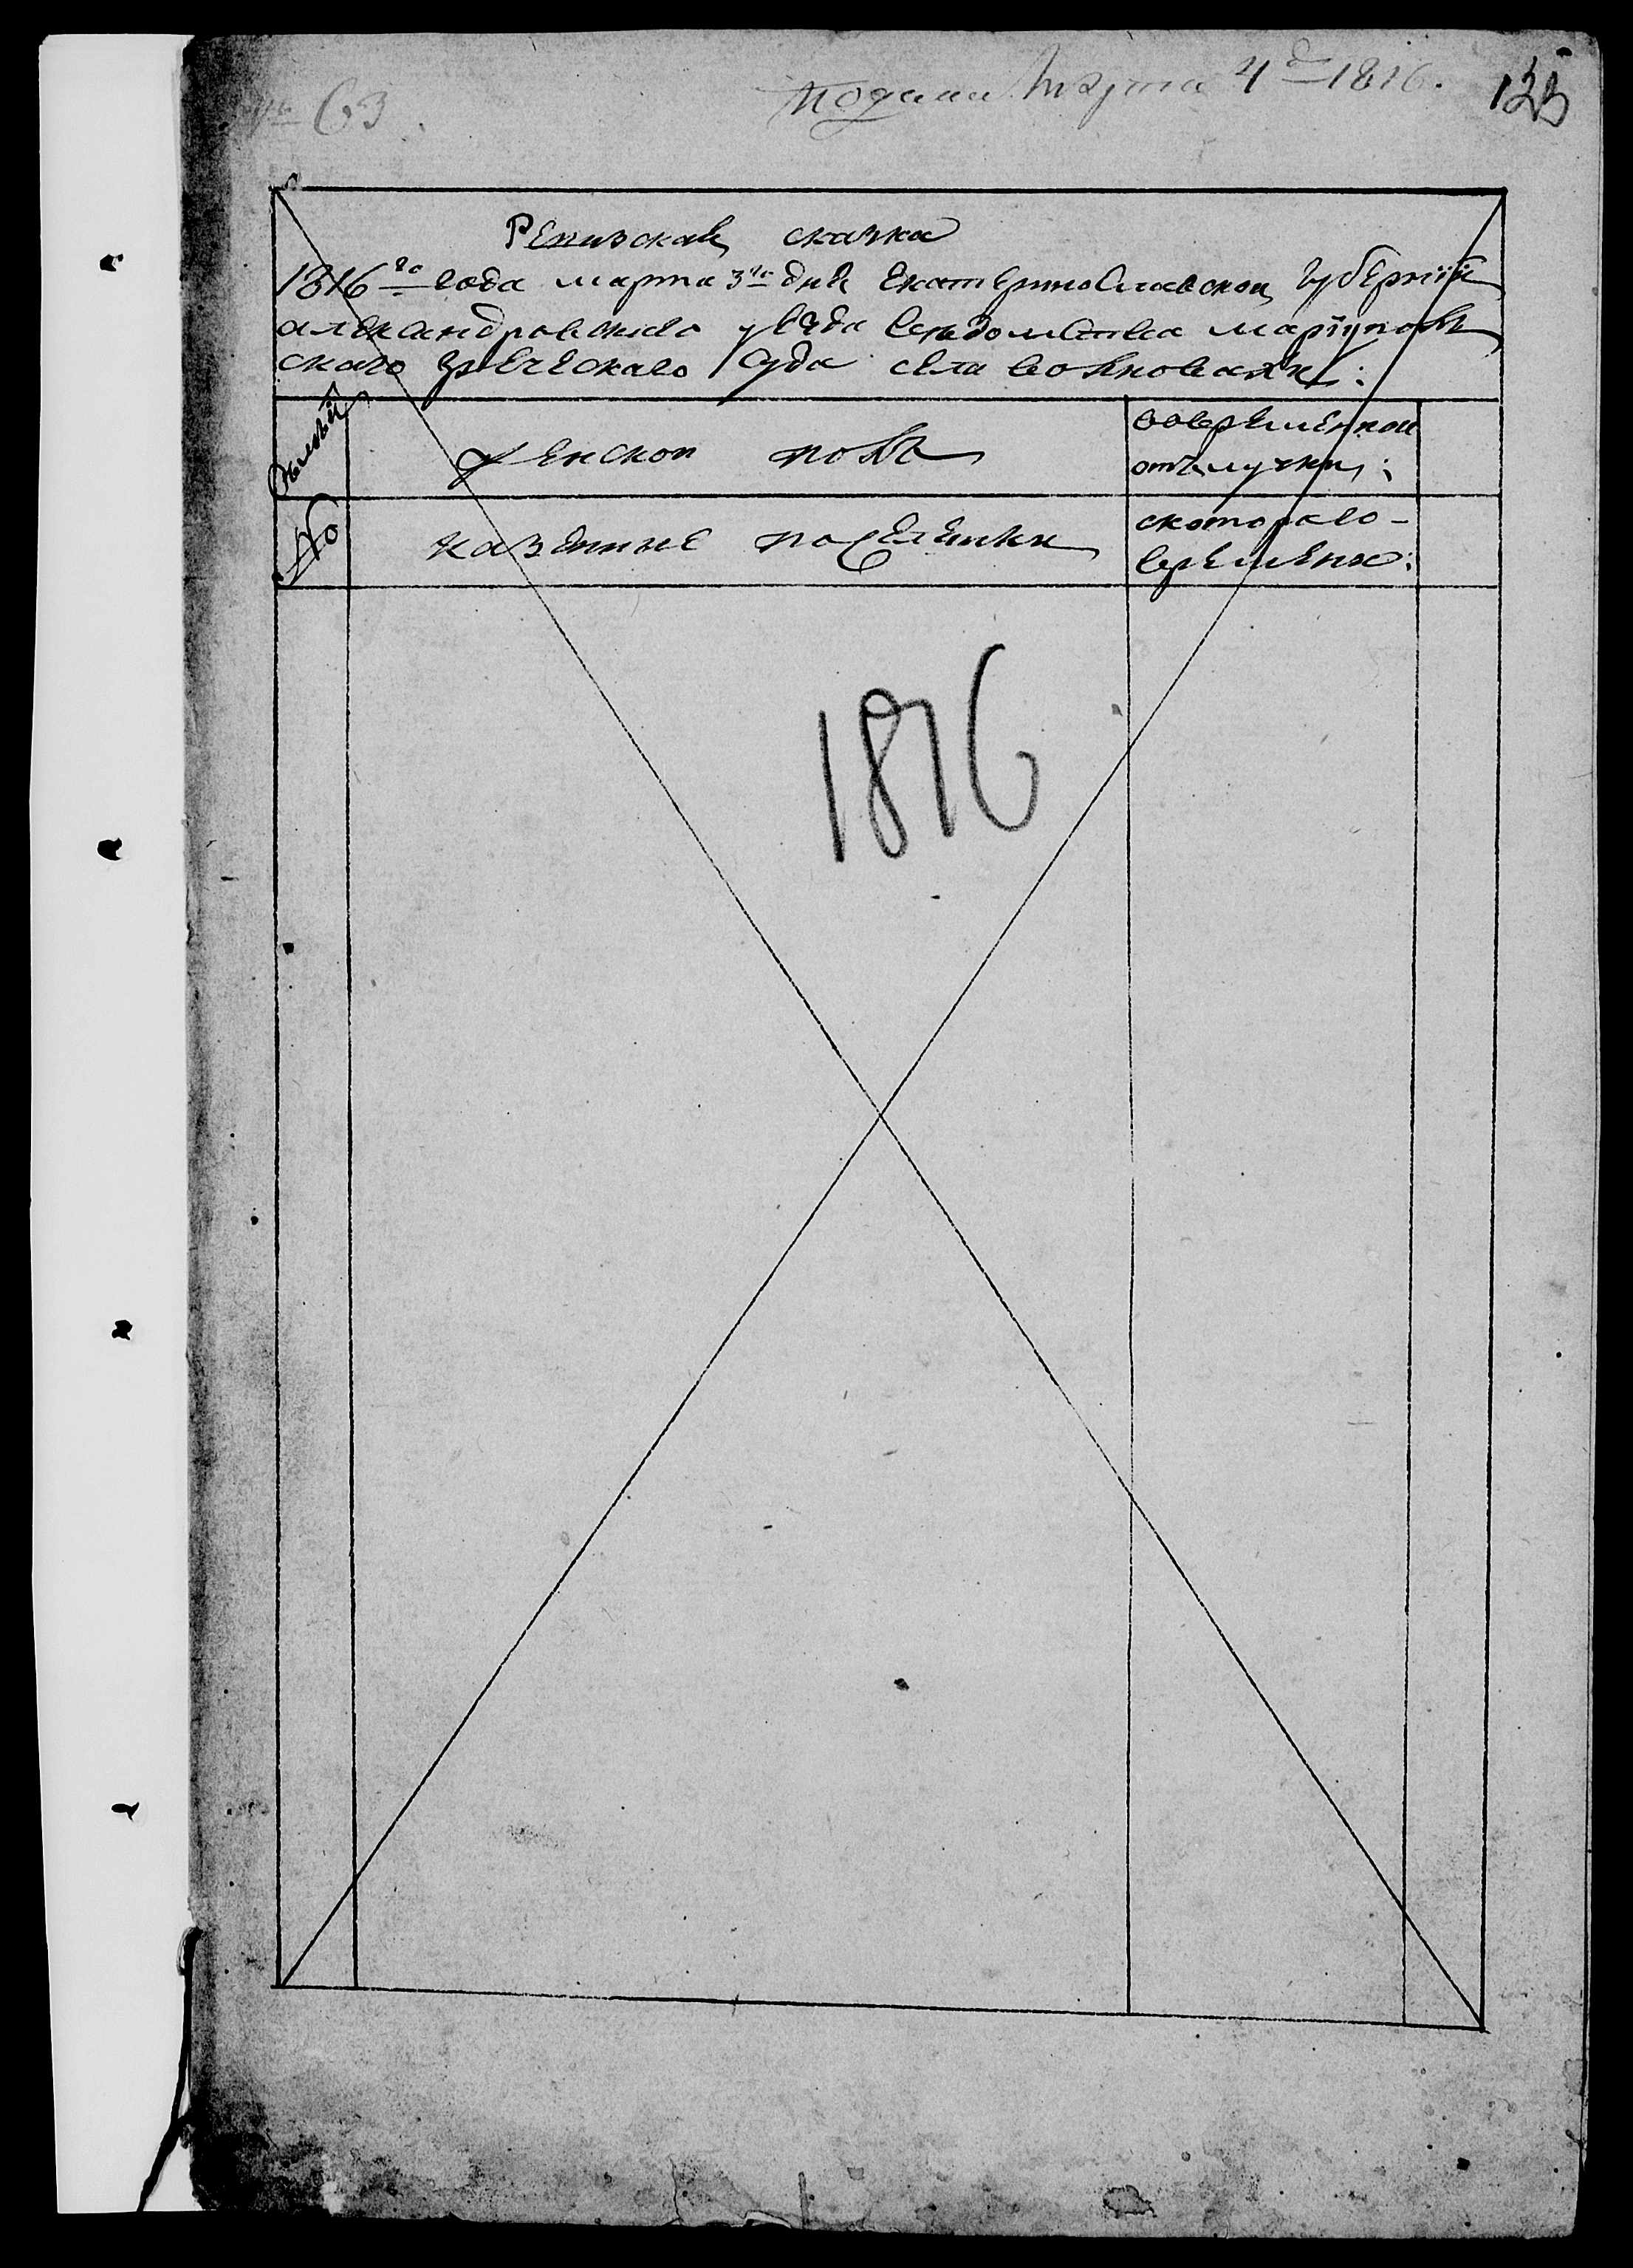 № 63.
Подана Марта 4 д 1816.
125
Ревизская сказка
1816го года марта 3го дня Екатеринославской губернïи
александровскаго уезда ведомства марïуполь
скаго греческаго суда села волновахи:
женской полъ
вовременной
отълучки:
No
казенные поселянки
скотораго-
времени:
1816